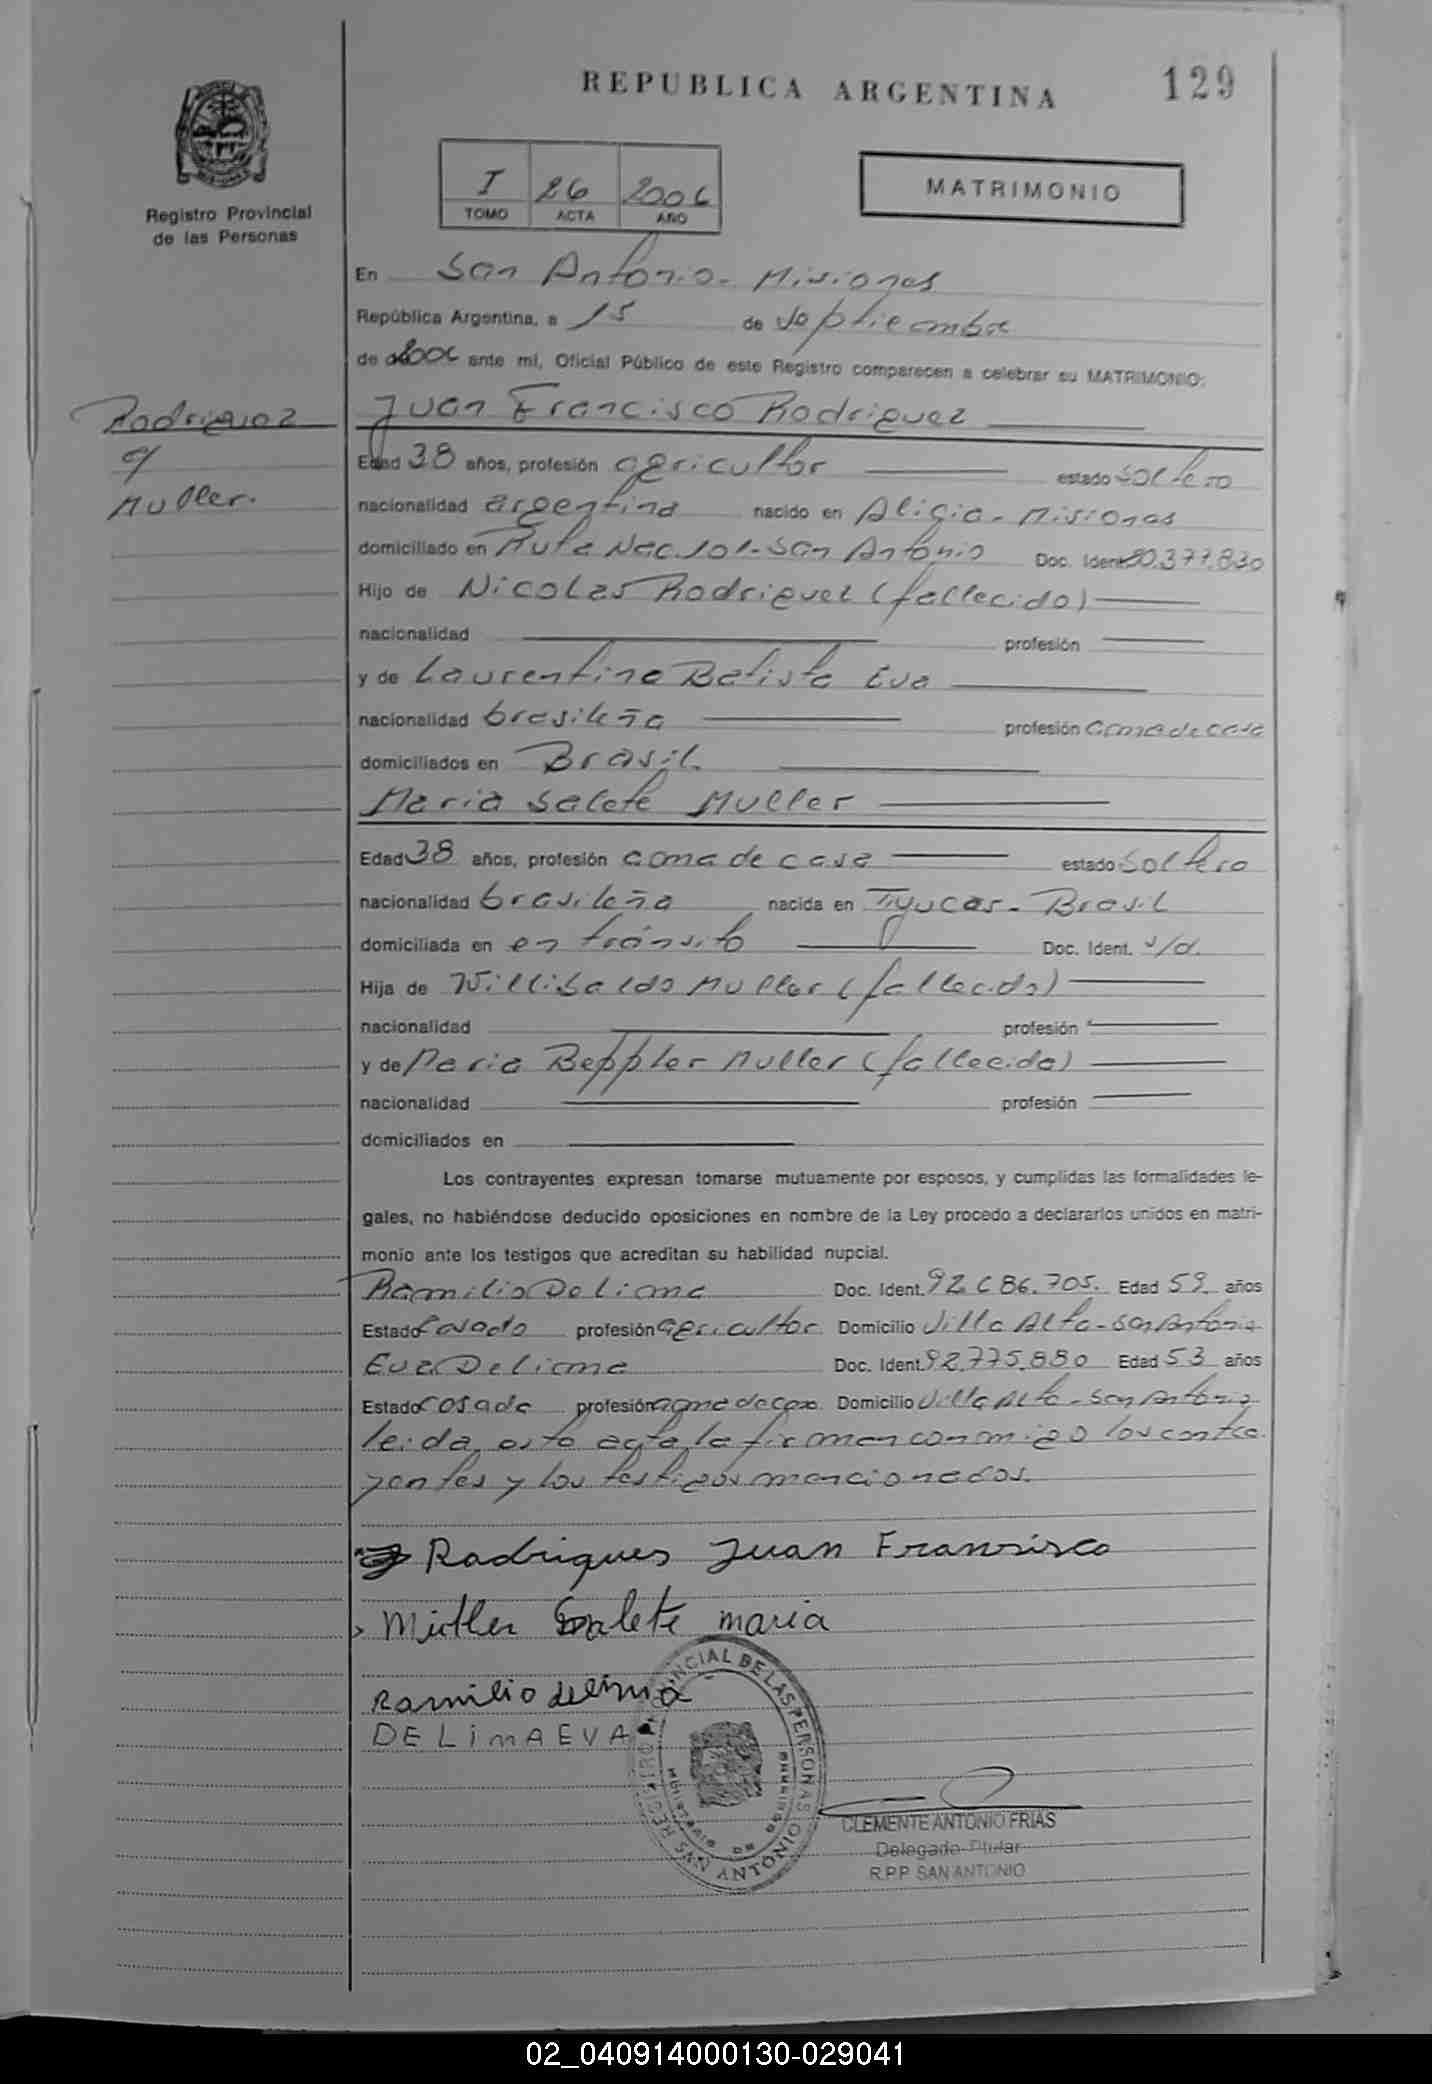 REPUBLICA ARGENTINA
129
Registro Provincial
de las Personas
I 26 2006
TOMO ACTA AÑO
MATRIMONIO
En San Antonio - Misiones
República Argentina, a 15 de Septiembre
de 2006 ante mi, Oficial Público de este Registro comparecen a celebrar su MATRIMONIO:
Rodriguez
c/
Muller.
Juan Francisco Rodriguez
Edad 38 años, profesión agricultor estado soltero
nacionalidad argentina nacido en Alicia - Misiones
domiciliado en Ruta Nac. 101 - San Antonio Doc. Ident. 20.377.830
Hijo de Nicolas Rodriguez (fallecido)
nacionalidad profesión
y de Laurentina Batista Eva
nacionalidad brasileña profesión ama de casa
domiciliados en Brasil
Maria Salete Muller
Edad 38 años, profesión ama de casa estado soltera
nacionalidad brasileña nacida en Tijucas - Brasil
domiciliada en en tránsito Doc. Ident. s/d.
Hija de Willibaldo Muller (fallecido)
nacionalidad profesión
y de Maria Beppler Muller (fallecida)
nacionalidad profesión
domiciliados en
Los contrayentes expresan tomarse mutuamente por esposos, y cumplidas las formalidades le-
gales, no habiéndose deducido oposiciones en nombre de la Ley procedo a declararlos unidos en matri-
monio ante los testigos que acreditan su habilidad nupcial.
Ramilio De Lima Doc. Ident. 92.686.705. Edad 59 años
Estado Casado profesión agricultor Domicilio Villa Alta - San Antonio
Eva De Lima Doc. Ident. 92.775.880 Edad 53 años
Estado casada profesión ama de casa Domicilio Villa Alta - San Antonio
leida esta acta la firman conmigo los contra
yentes y los testigos mencionados.
Rodrigues Juan Fransisco
Muller Salete maria
Ramilio delima
DE LimA EVA
REGISTRO PROVINCIAL DE LAS PERSONAS
Ministerio de Gobierno
SAN ANTONIO
CLEMENTE ANTONIO FRIAS
Delegado Titular
R.P.P. SAN ANTONIO
02_040914000130-029041